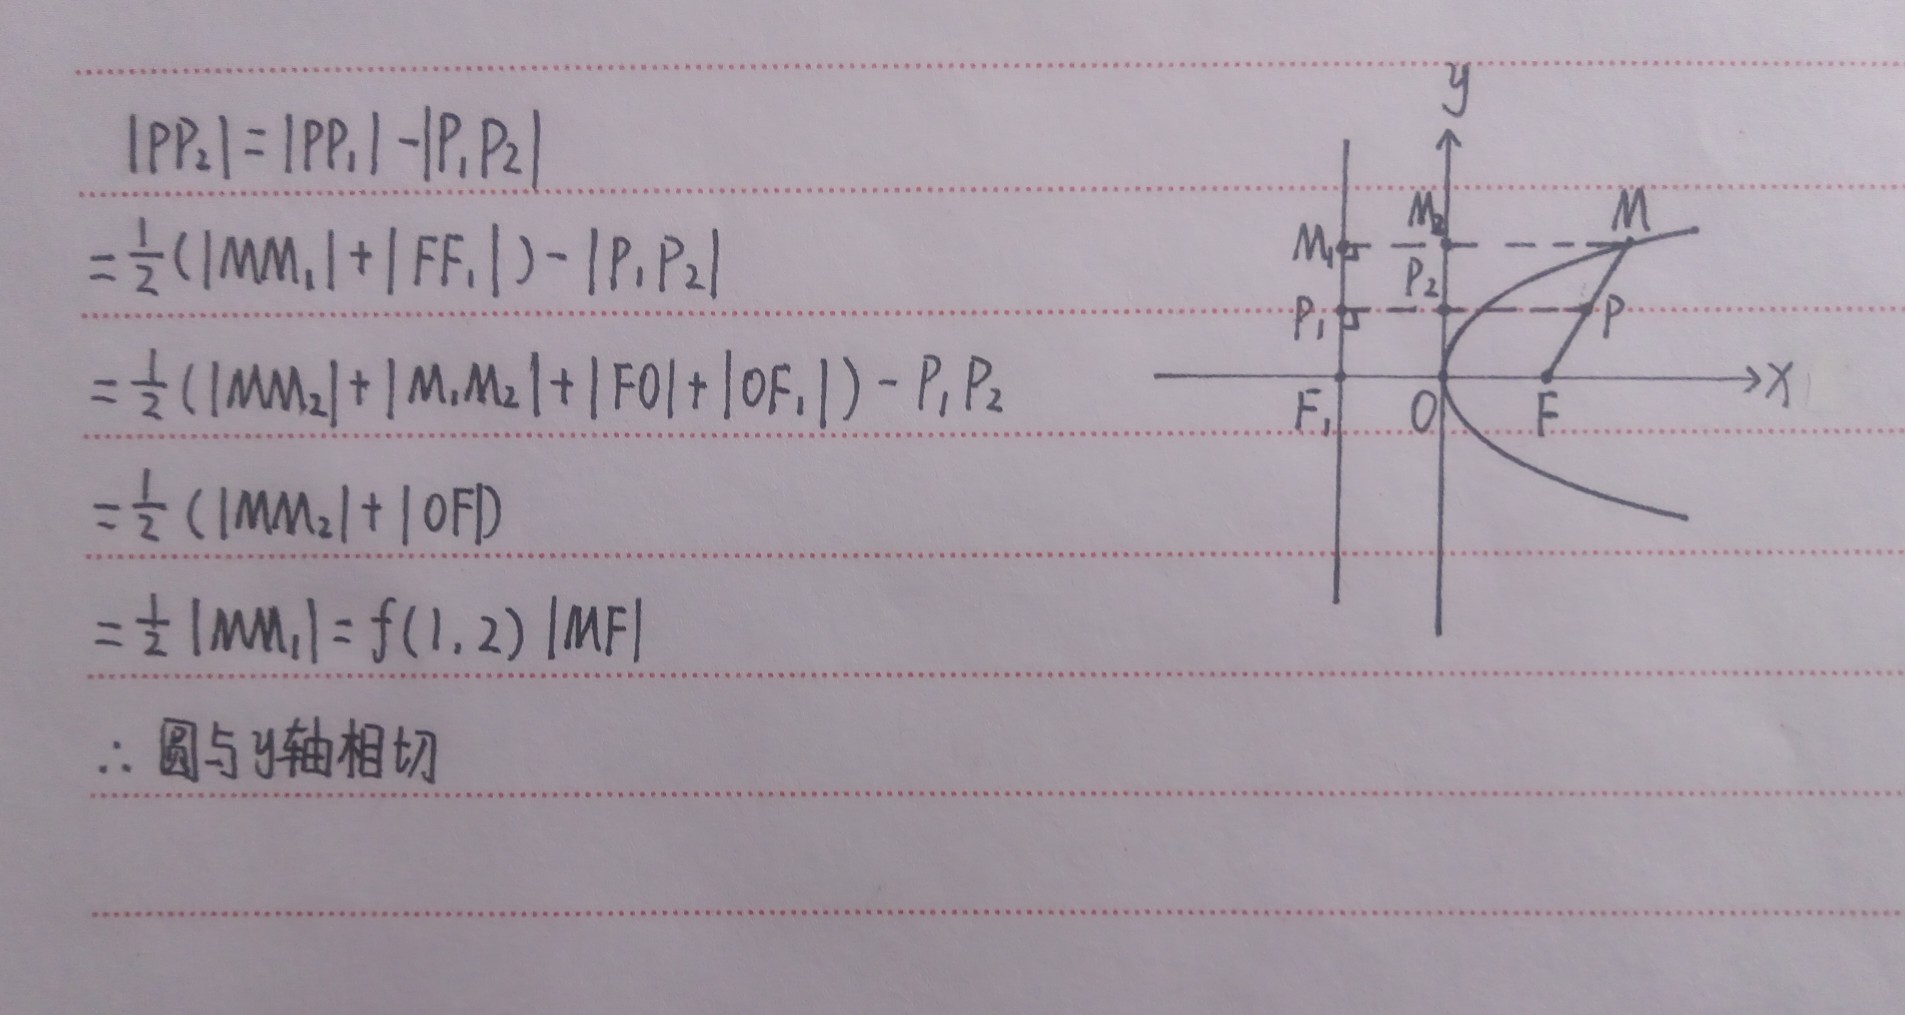 |PP₂|=|PP₁|-|P₁P₂|
=½(|MM₁|+|FF₁|)-|P₁P₂|
=½(|MM₂|+|M₁M₂|+|FO|+|OF₁|)-P₁P₂
=½(|MM₂|+|OF|)
=½|MM₁|=f(1,2)|MF|
∴圆与y轴相切
y
M₁ M₂ M
P₁ P₂ P
F₁ O F x